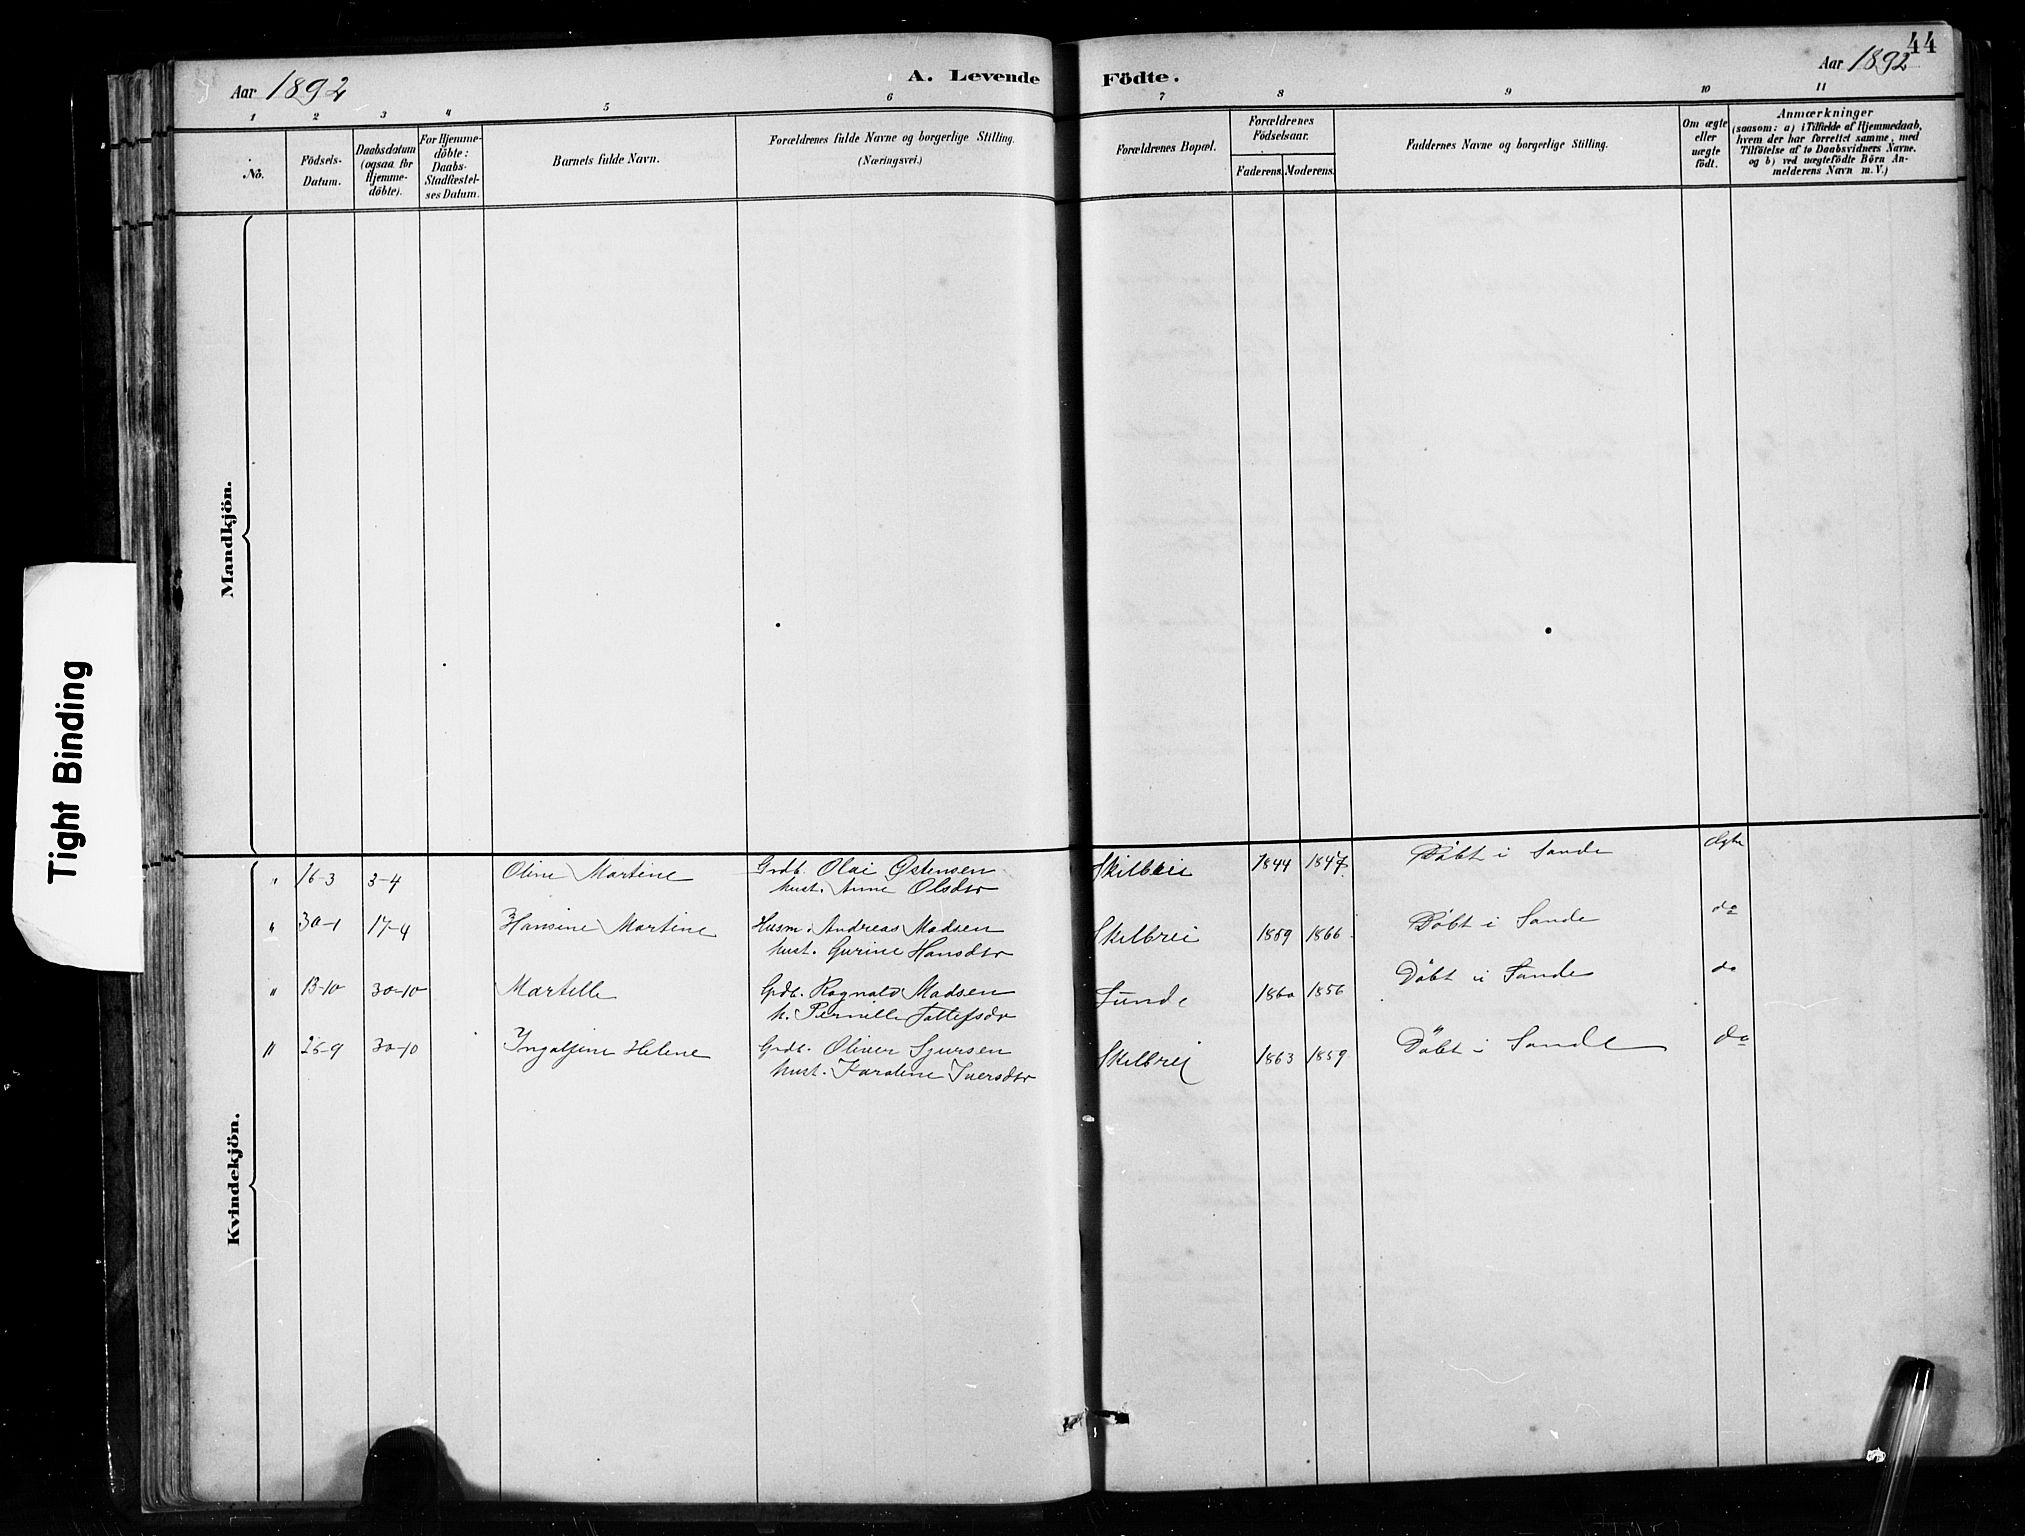 44
Aar 1892
A. Levende Födte.
Aar 1892
1 2 3 4 5 6 7 8 9 10 11
No.
Födsels-
Datum.
Daabsdatum
(ogsaa for
Hjemme-
döbte).
For Hjemme-
döbte:
Daabs-
Stadfæstel-
ses Datum.
Barnets fulde Navn.
Forældrenes fulde Navne og borgerlige Stilling.
(Næringsvei.)
Forældrenes Bopæl.
Forældrenes
Födselsaar.
Faderens. Moderens.
Faddernes Navne og borgerlige Stilling.
Om ægte
eller
uægte
födt.
Anmærkninger
(saasom: a) i Tilfælde af Hjemmedaab,
hvem der har forrettet samme, med
Tilföielse af to Daabsvidners Navne.
og b) ved uægtefödte Börn An-
melderens Navn m. V.)
Mandkjön.
Tight Binding
Kvindekjön.
" 16-3 3-4 Oline Martine Grdb. Olai Østensen Skilbrei 1844 1847 Døbt i Sande Ægte
hust. Anne Olsdtr
" 30-1 17-4 Hansine Martine Husm. Andreas Madsen Skilbrei 1859 1866 Døbt i Sande do
hust. Gurine Hansdtr
" 13-10 30-10 Martelle Grdb. Ragnald Madsen Sunde 1860 1856 Døbt i Sande do
h. Pernille Tollefsdr
" 26-9 30-10 Helene Grdb. Oliver Sjursen Skilbrei 1863 1859 Døbt i Sande do
hust. Karoline Iversdtr